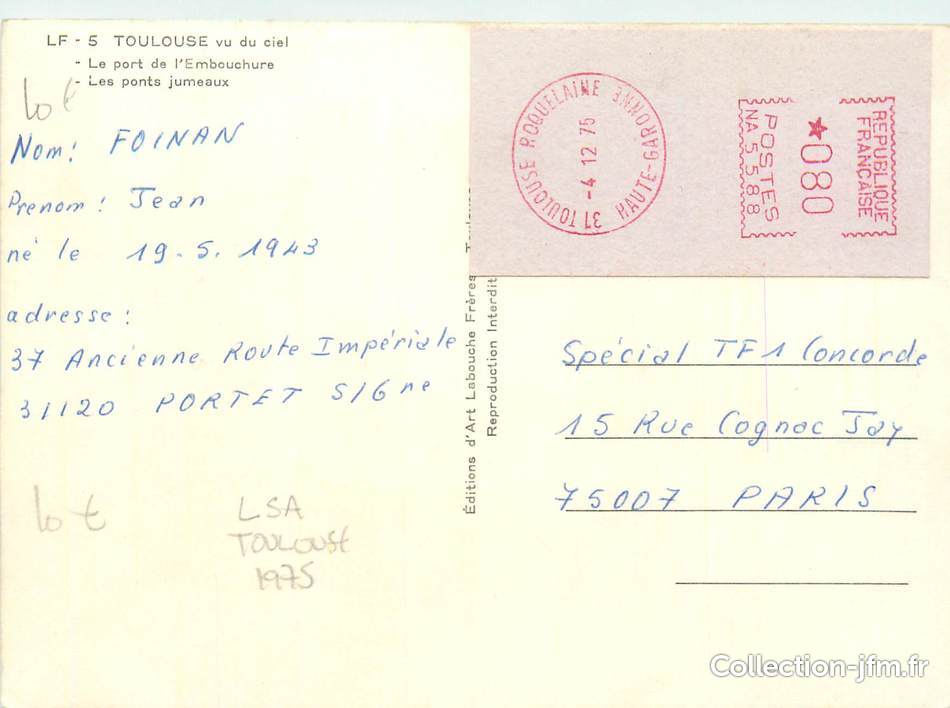 LF - 5 TOULOUSE vu du ciel
- Le port de l'Embouchure
- Les ponts jumeaux
10 €
Nom: FOINAN
Prenom: Jean
né le 19.5.1943
adresse:
37 Ancienne Route Impériale
31120 PORTET S/Gne
10 €
LSA
TOULOUSE
1975
Éditions d'Art Labouche Frères
Reproduction Interdit
31 TOULOUSE ROQUELAINE
-4 12 75
HAUTE-GARONNE
REPUBLIQUE
FRANÇAISE
★080
POSTES
NA 5588
Spécial TF1 Concorde
15 Rue Cognac Jay
75007 PARIS
Collection-jfm.fr